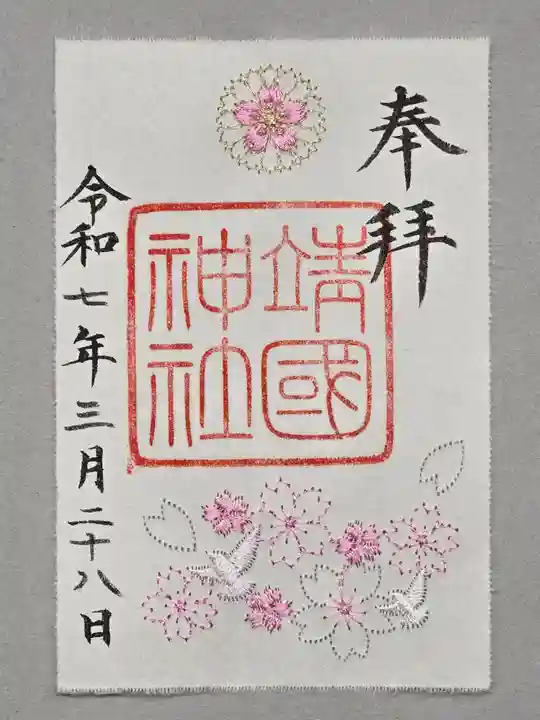 奉拝
靖國
神社
令和七年三月二十八日